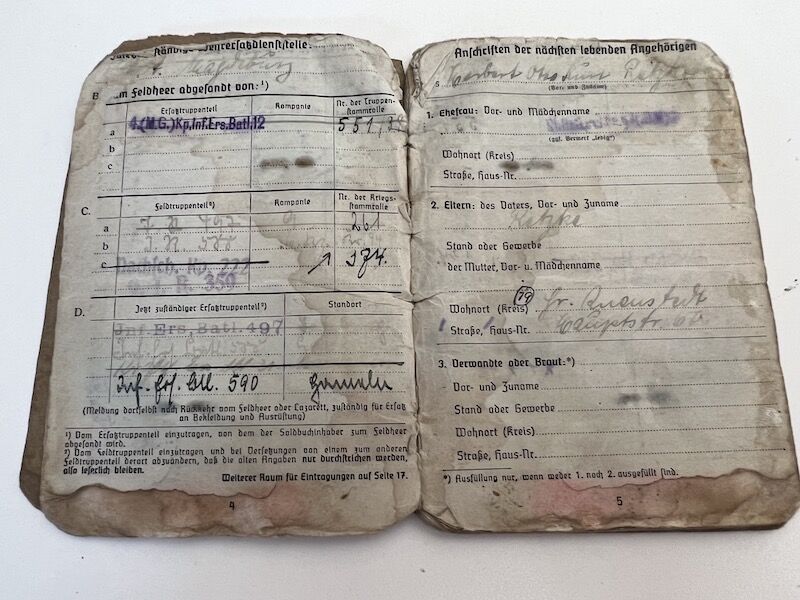 ständige Wehrersatzdienststelle:
Magdeburg
B
um Feldheer abgesandt von:¹)
Ersatztruppenteil
Kompanie
Nr. der Truppen-
stammrolle
a 4.(M.G.)Kp.Inf.Ers.Batl.12
b
c
C.
Feldtruppenteil²)
Kompanie
Nr. der Kriegs-
stammrolle
a 261
b
c 374.
D.
Jetzt zuständiger Ersatztruppenteil²)
Standort
Inf.Ers.Batl.497
Inf. Ers. Btl. 590 Hameln
(Meldung dortselbst nach Rückkehr vom Feldheer oder Lazarett, zuständig für Ersatz
an Bekleidung und Ausrüstung)
¹) Vom Ersatztruppenteil einzutragen, von dem der Soldbuchinhaber zum Feldheer
abgesandt wird.
²) Vom Feldtruppenteil einzutragen und bei Versetzungen von einem zum anderen
Feldtruppenteil derart abzuändern, daß die alten Angaben nur durchstrichen werden,
also leserlich bleiben.
Weiterer Raum für Eintragungen auf Seite 17.
4
Anschriften der nächsten lebenden Angehörigen
(Vor- und Zuname)
1. Ehefrau: Vor- und Mädchenname
(ggf. Vermerk „ledig“)
Wohnort (Kreis)
Straße, Haus-Nr.
2. Eltern: des Vaters, Vor- und Zuname
Stand oder Gewerbe
der Mutter, Vor- u. Mädchenname
Wohnort (Kreis) (19) Gr. Quenstedt
Straße, Haus-Nr. Hauptstr.
3. Verwandte oder Braut:*)
Vor- und Zuname
Stand oder Gewerbe
Wohnort (Kreis)
Straße, Haus-Nr.
*) Ausfüllung nur, wenn weder 1. noch 2. ausgefüllt sind.
5